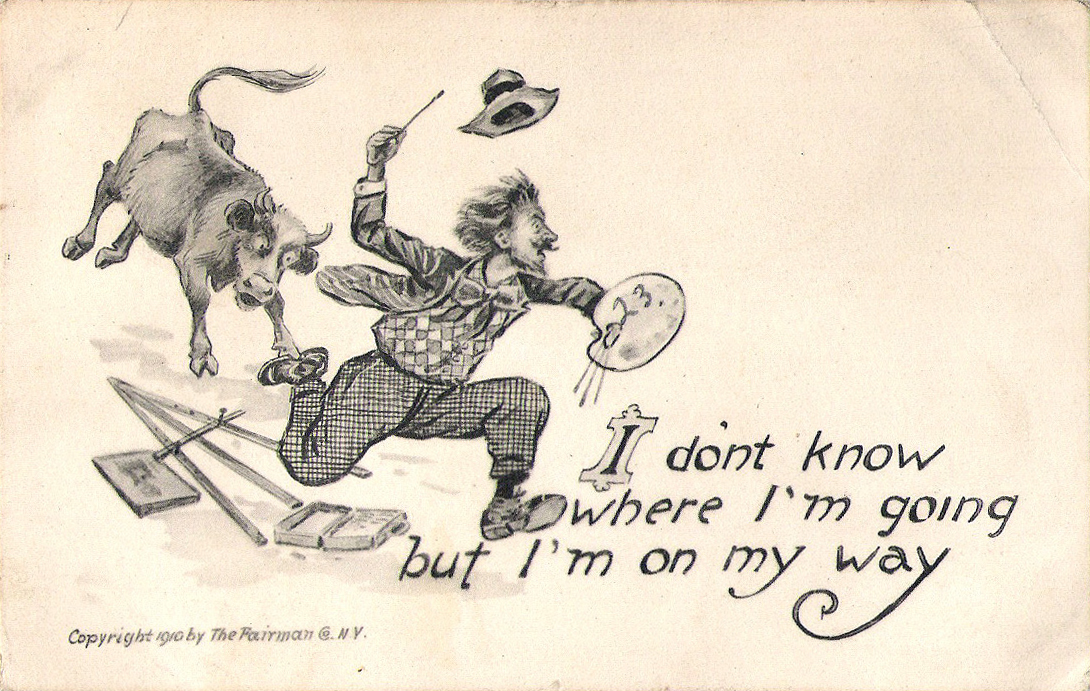 I do'nt know
where I'm going
but I'm on my way
Copyright 1910 by The Fairman Co. N.Y.